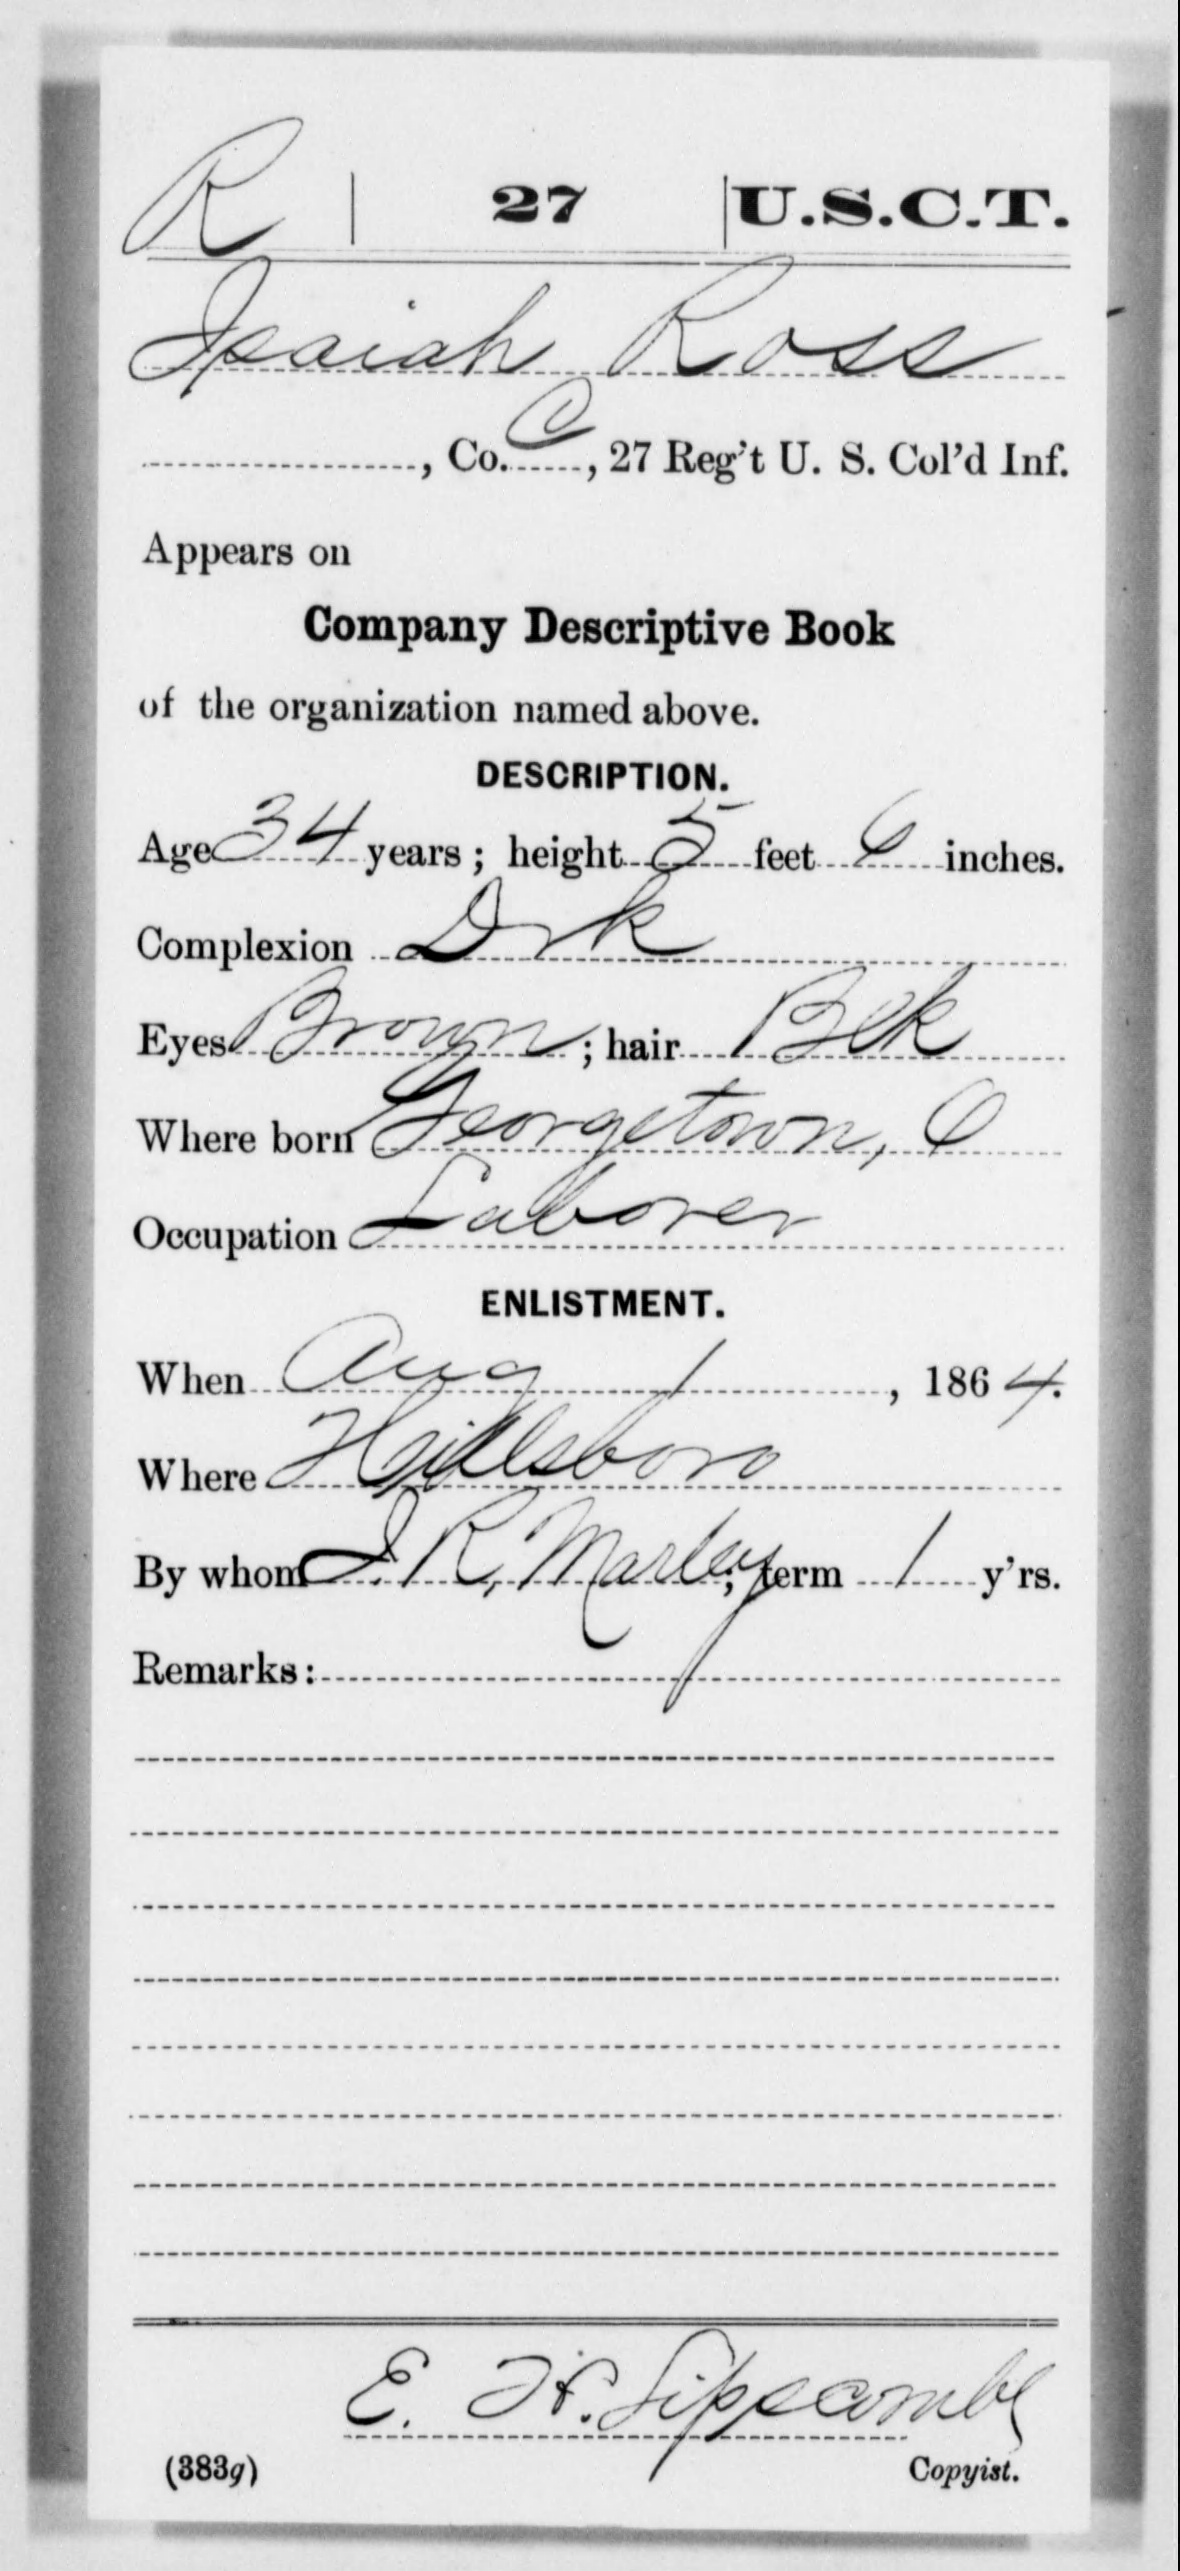 R | 27 | U.S.C.T.
Isaiah Ross
, Co. C, 27 Reg't U. S. Col'd Inf.
Appears on
Company Descriptive Book
of the organization named above.
DESCRIPTION.
Age 34 years; height 5 feet 6 inches.
Complexion Drk
Eyes Brown; hair Blk
Where born Georgetown, O
Occupation Laborer
ENLISTMENT.
When Aug 1, 1864.
Where Hillsboro
By whom I. R. Marley; term 1 y'rs.
Remarks:
E. H. Lipscombe
(383g) Copyist.